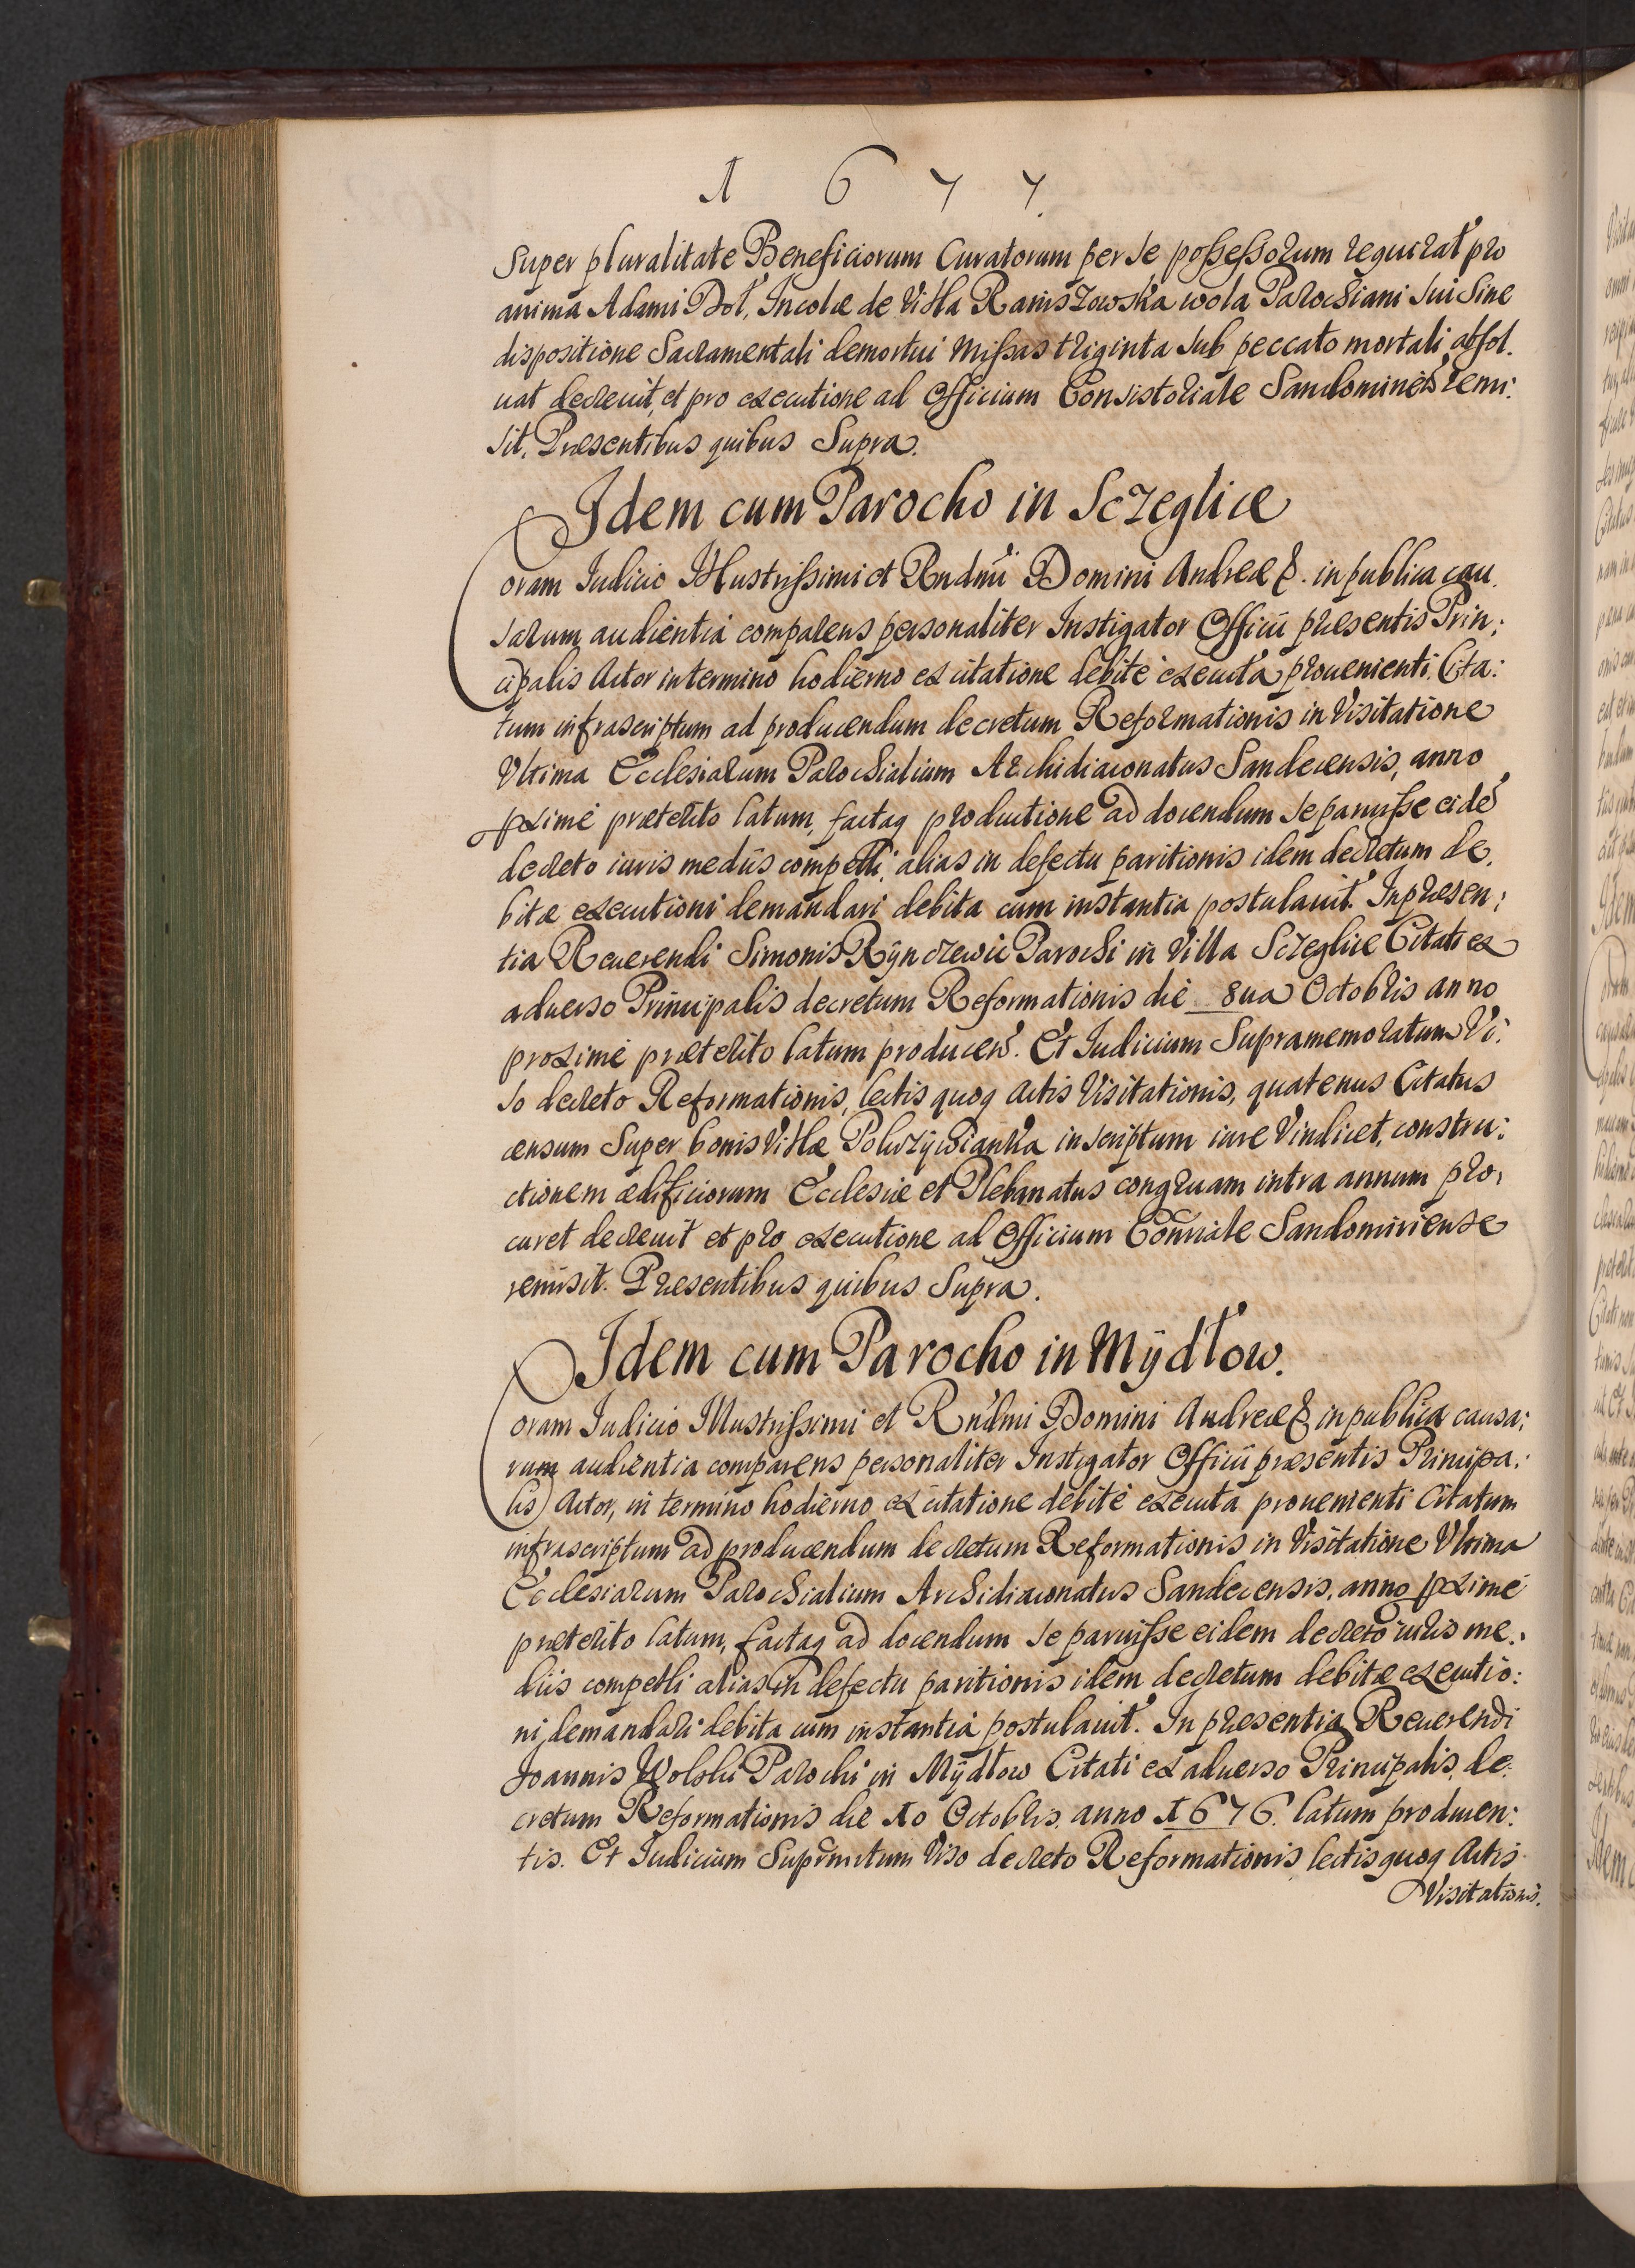 1 6 7 7.
Super pluralitate Beneficiorum Curatorum per se possessorum requirat pro
anima Adami Dol, Incolæ de Villa Raniszowska wola Parochiani sui sine
dispositione Sacramentali demortui Missas triginta sub peccato mortali absol.
uat decreuit, et pro executione ad Officium Consistoriale Sandomineñ remi:
sit. Præsentibus quibus Supra.
Idem cum Parocho in Sczeglice
Coram Iudicio Illustrissimi et Rndmi Domini Andreæ &. in publica cau.
sarum audientia comparens personaliter Instigator Officii præsentis Prin:
cipalis Actor in termino hodierno ex citatione debite executa prouenienti. Cita:
tum infrascriptum ad producendum decretum Reformationis in Visitatione
Ultima Ecclesiarum Parochialium Archidiaconatus Sandecensis, anno
pxime præterito latum, factaq productione ad docendum se paruisse eidē
decreto iuris mediis compelli, alias in defectu paritionis idem decretum de.
bitæ executioni demandari debita cum instantia postulauit. In præsen:
tia Reuerendi Simonis Rÿnczewic Parochi in Villa Sczeglice Citati ex
aduerso Principalis decretum Reformationis die 8ua Octobris anno
proxime præterito latum producen. Et Iudicium Supramemoratum Vi:
so decreto Reformationis, lectis quoq Actis Visitationis, quatenus Citatus
censum Super bonis Villæ Polurzÿdianka inscriptum iure Vindicet, constru:
ctionem ædificiorum Ecclesiæ et Plebanatus congruam intra annum pro,
curet decreuit et pro executione ad OfficiumConriale Sandomiriense
remisit. Præsentibus quibus Supra.
Idem cum Parocho in Mÿdłow.
Coram Iudicio Illustrissimi et Rndmi Domini Andreæ & in publica causa:
rum audientia comparens personaliter Instigator Officii præsentis Principa:
lis Actor, in termino hodierno ex citatione debite executa prouenienti Citatum
infrascriptum ad producendum decretum Reformationis in Visitatione Ultima
Ecclesiarum Parochialium Archidiaconatus Sandecensis, anno pxime
præterito latum, factaq ad docendum se paruisse eidem decreto iuris me:
diis compelli alias in defectu paritionis idem decretum debitæ executio:
ni demandari debita cum instantia postulauit. In præsentia Reuerendi
Joannis Wolski Parochi in Mÿdłow Citati ex aduerso Principalis, de:
cretum Reformationis die 10 Octobris anno 1676. latum producen:
tis. Et Iudicium Suprmtum Viso decreto Reformationis lectis quoq Actis
Visitationis.